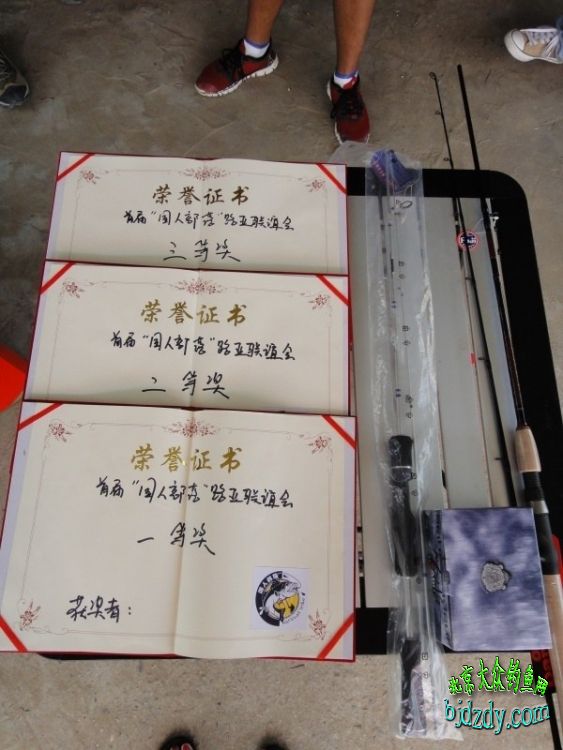 荣誉证书
首届“国人部落”路亚联谊会
三等奖
荣誉证书
首届“国人部落”路亚联谊会
二等奖
荣誉证书
首届“国人部落”路亚联谊会
一等奖
获奖者：
北京大众钓鱼网
bjdzdy.com